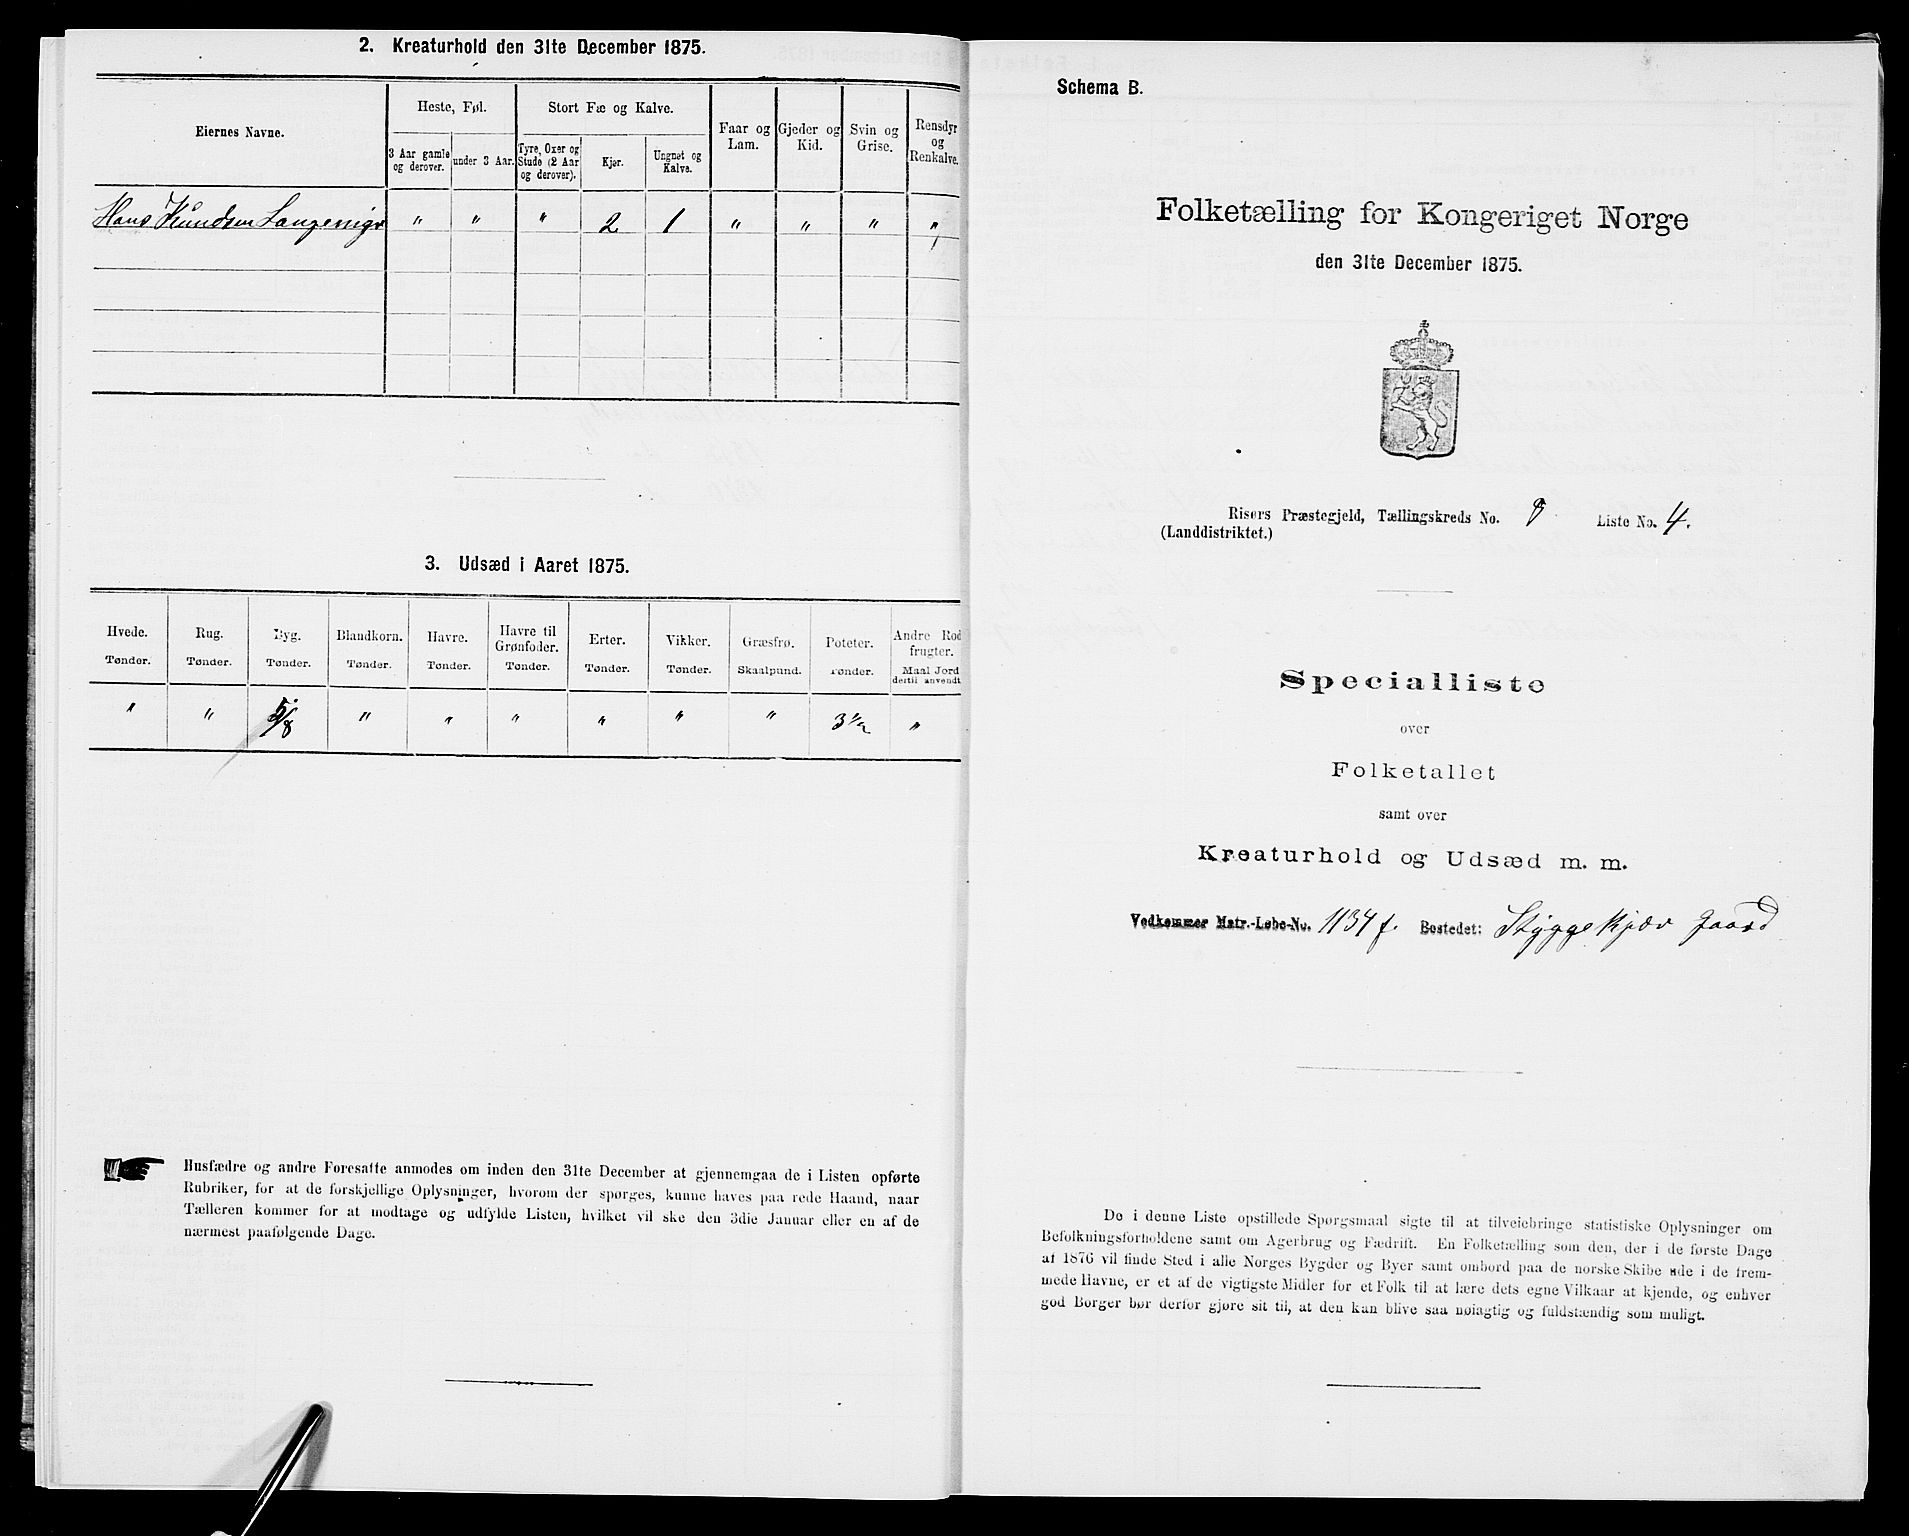 2. Kreaturhold den 31te December 1875.
Eiernes Navne.
Heste, Føl.
Stort Fæ og Kalve.
Faar og Lam.
Gjeder og Kid.
Svin og Grise.
Rensdyr og Renkalve.
3 Aar gamle og derover.
under 3 Aar.
Tyre, Oxer og Stude (2 Aar og derover).
Kjør.
Ungnøt og Kalve.
Hans Knudsen " " " 2 1 " " " "
3. Udsæd i Aaret 1875.
Hvede. Rug. Byg. Blandkorn. Havre. Havre til Grønfoder. Erter. Vikker. Græsfrø. Poteter. Andre Rodfrugter.
Tønder. Tønder. Tønder. Tønder. Tønder. Tønder. Tønder. Tønder. Skaalpund. Tønder. Maal Jord dertil anvendt.
" " 5/8 " " " " " " 3 1/2 "
Husfædre og andre Foresatte anmodes om inden den 31te December at gjennemgaa de i Listen opførte
Rubriker, for at de forskjellige Oplysninger, hvorom der spørges, kunne haves paa rede Haand, naar
Tælleren kommer for at modtage og udfylde Listen, hvilket vil ske den 3die Januar eller en af de
nærmest paafølgende Dage.
Schema B.
Folketælling for Kongeriget Norge
den 31te December 1875.
Risørs Præstegjeld, Tællingskreds No. 8. Liste No. 4.
(Landdistriktet.)
Specialliste
over
Folketallet
samt over
Kreaturhold og Udsæd m. m.
Vedkommer Matr.-Løbe-No. 1134 f. Bostedet: Styggekjær gaard
De i denne Liste opstillede Spørgsmaal sigte til at tilveiebringe statistiske Oplysninger om
Befolkningsforholdene samt om Agerbrug og Fædrift. En Folketælling som den, der i de første Dage
af 1876 vil finde Sted i alle Norges Bygder og Byer samt ombord paa de norske Skibe ude i de frem-
mede Havne, er et af de vigtigste Midler for et Folk til at lære dets egne Vilkaar at kjende, og enhver
god Borger bør derfor gjøre sit til, at den kan blive saa nøiagtig og fuldstændig som muligt.